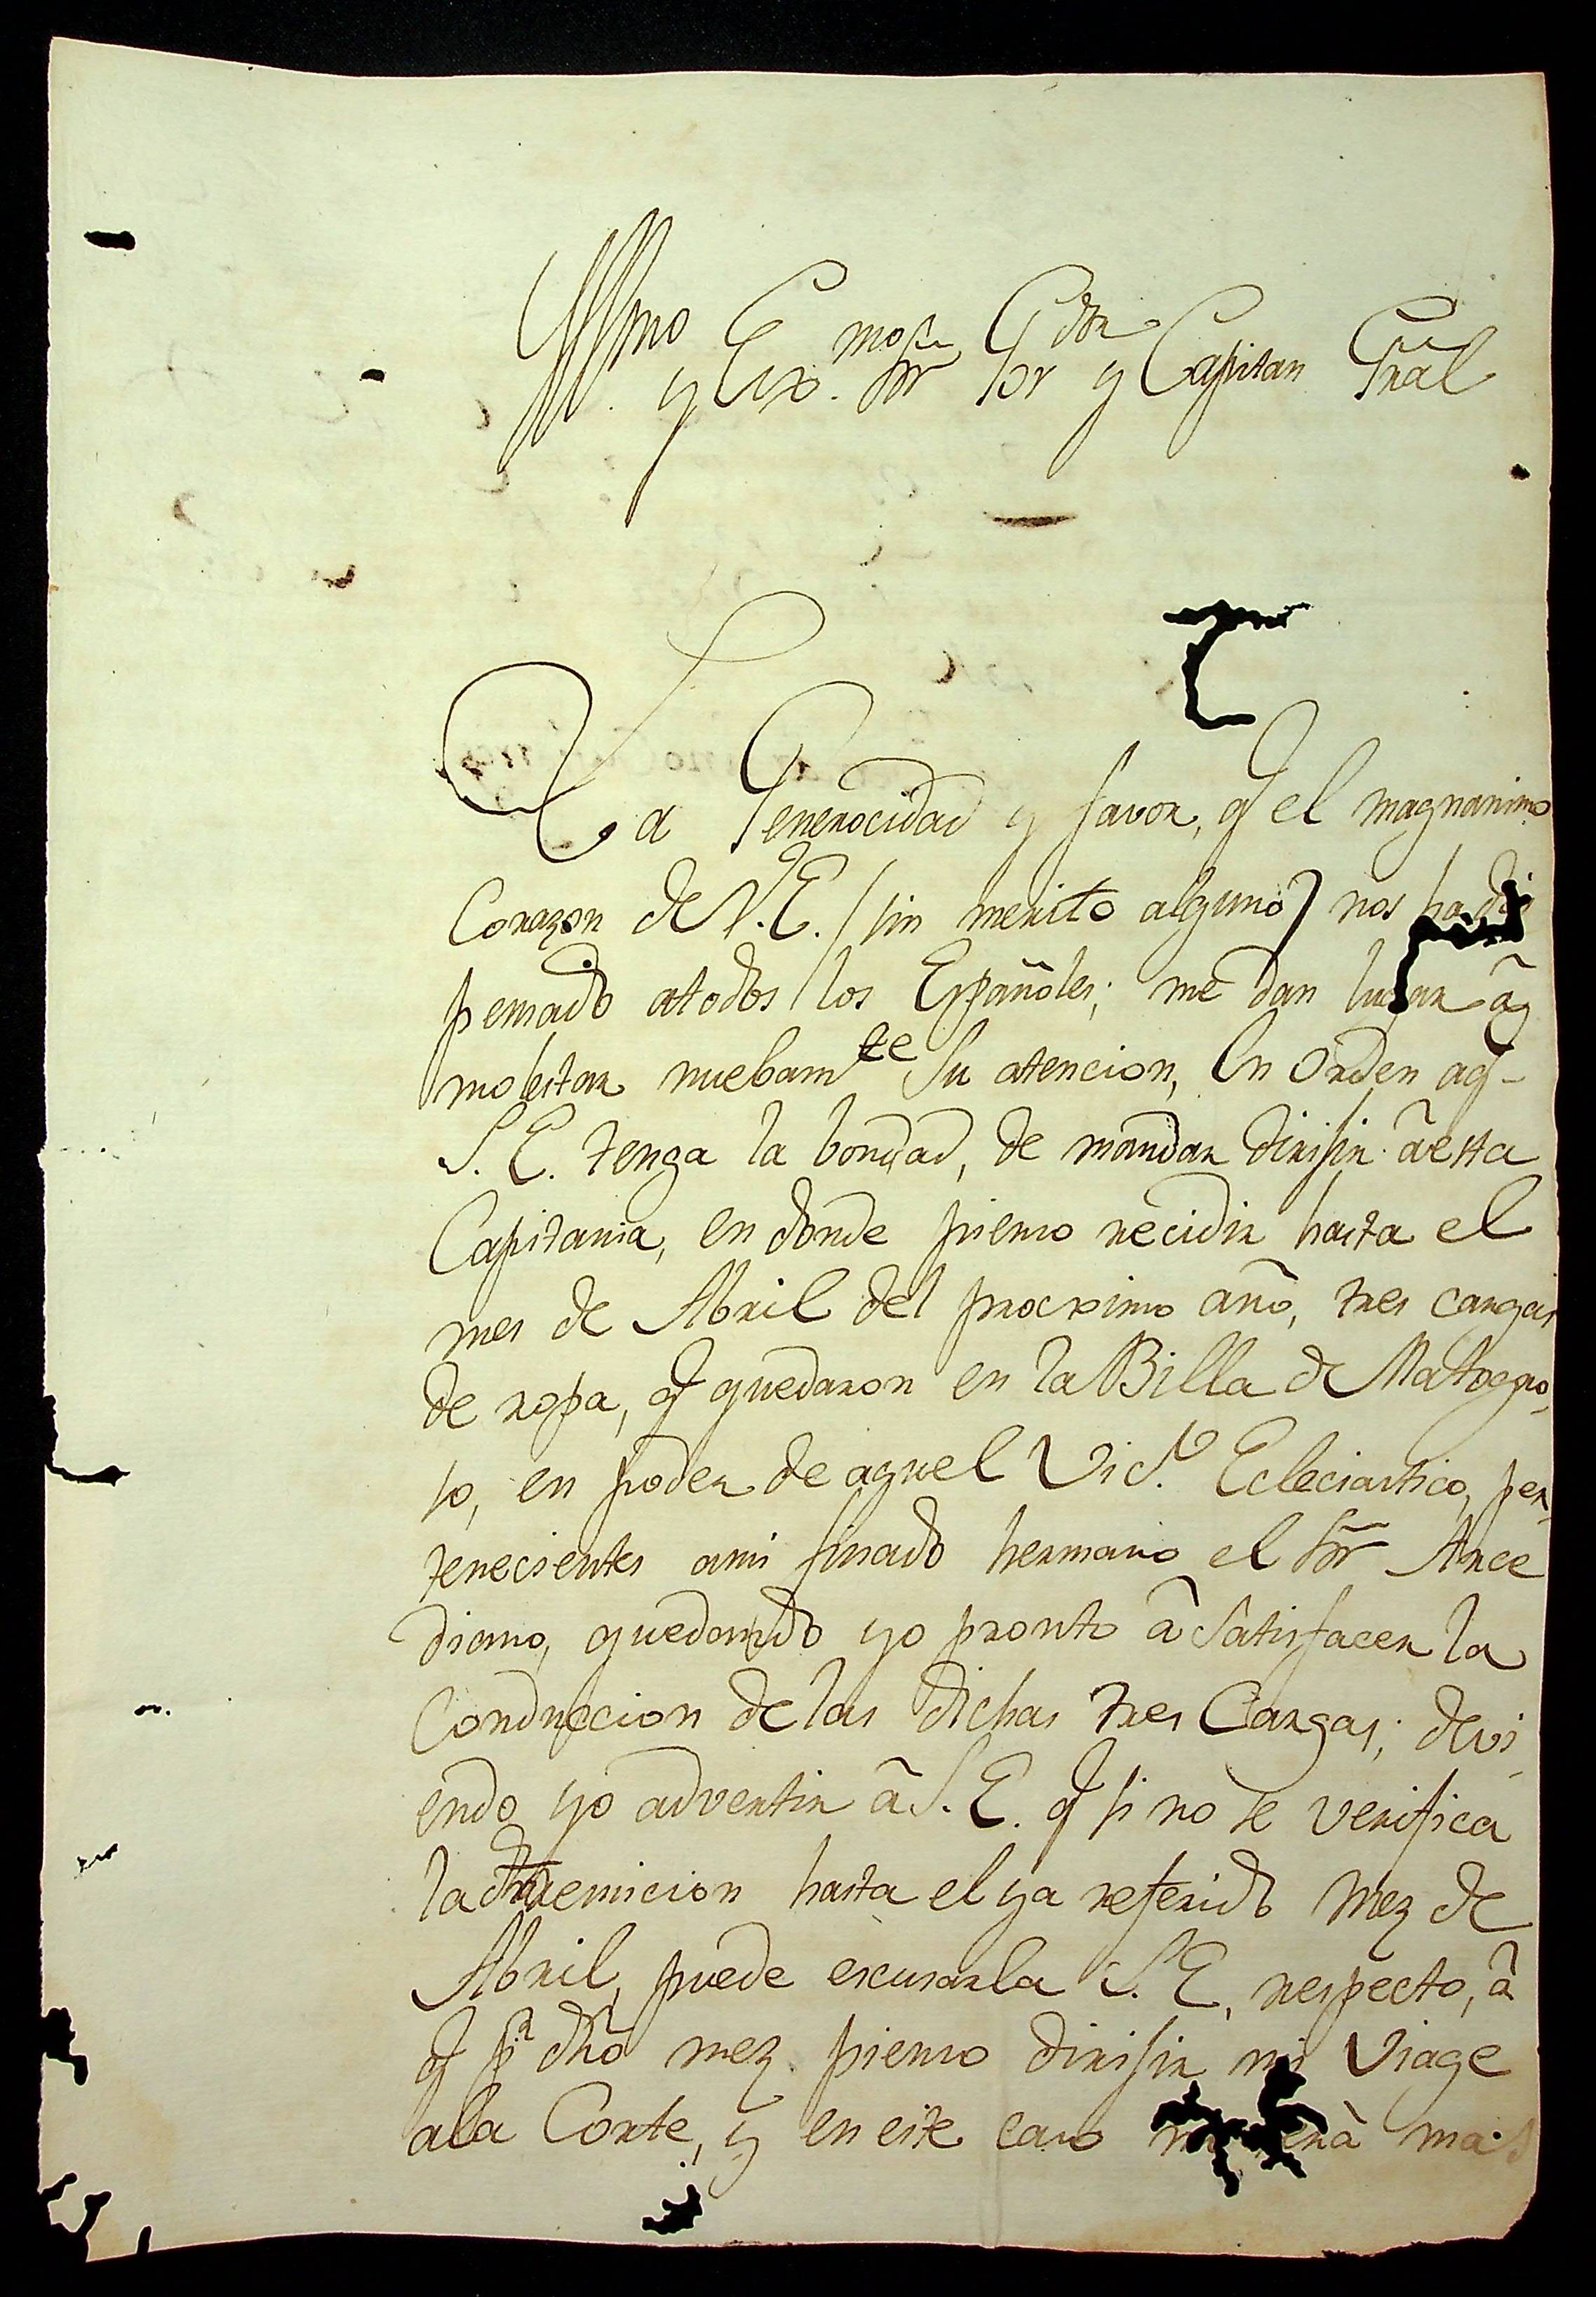 Yllmo y Exmo Sr Gdor y Capitan Gral
La Generocidad y favor, q el magnanimo
Corazon de V. E. (sin merito alguno) nos ha dis
pensado atodos los Españoles; me dan lugar â
molestar nuebamte Su atencion, En Orden aq
S. E. tenga la bondad, de mandar dirijir â esta
Capitania, en donde pienso recidir hasta el
mes de Abril del procximo año, tres cargas
de ropa, q quedaron en la Billa de Matogro,
so, en poder de aquel Vic.o Ecleciastico, per,
tenecientes ami finado hermano el Sor Arce
diano, quedando yo pronto â Satisfacer la
Conduccion de las dichas tres Cargas; devi,
endo yo advertir â S. E. q si no se verifica
la dha remicion hasta el ya referido Mez de
Abril, puede escusarla S. E. respecto, â
q pa dho mez pienso dirijir mi Viage
ala Corte, y en este caso será mas